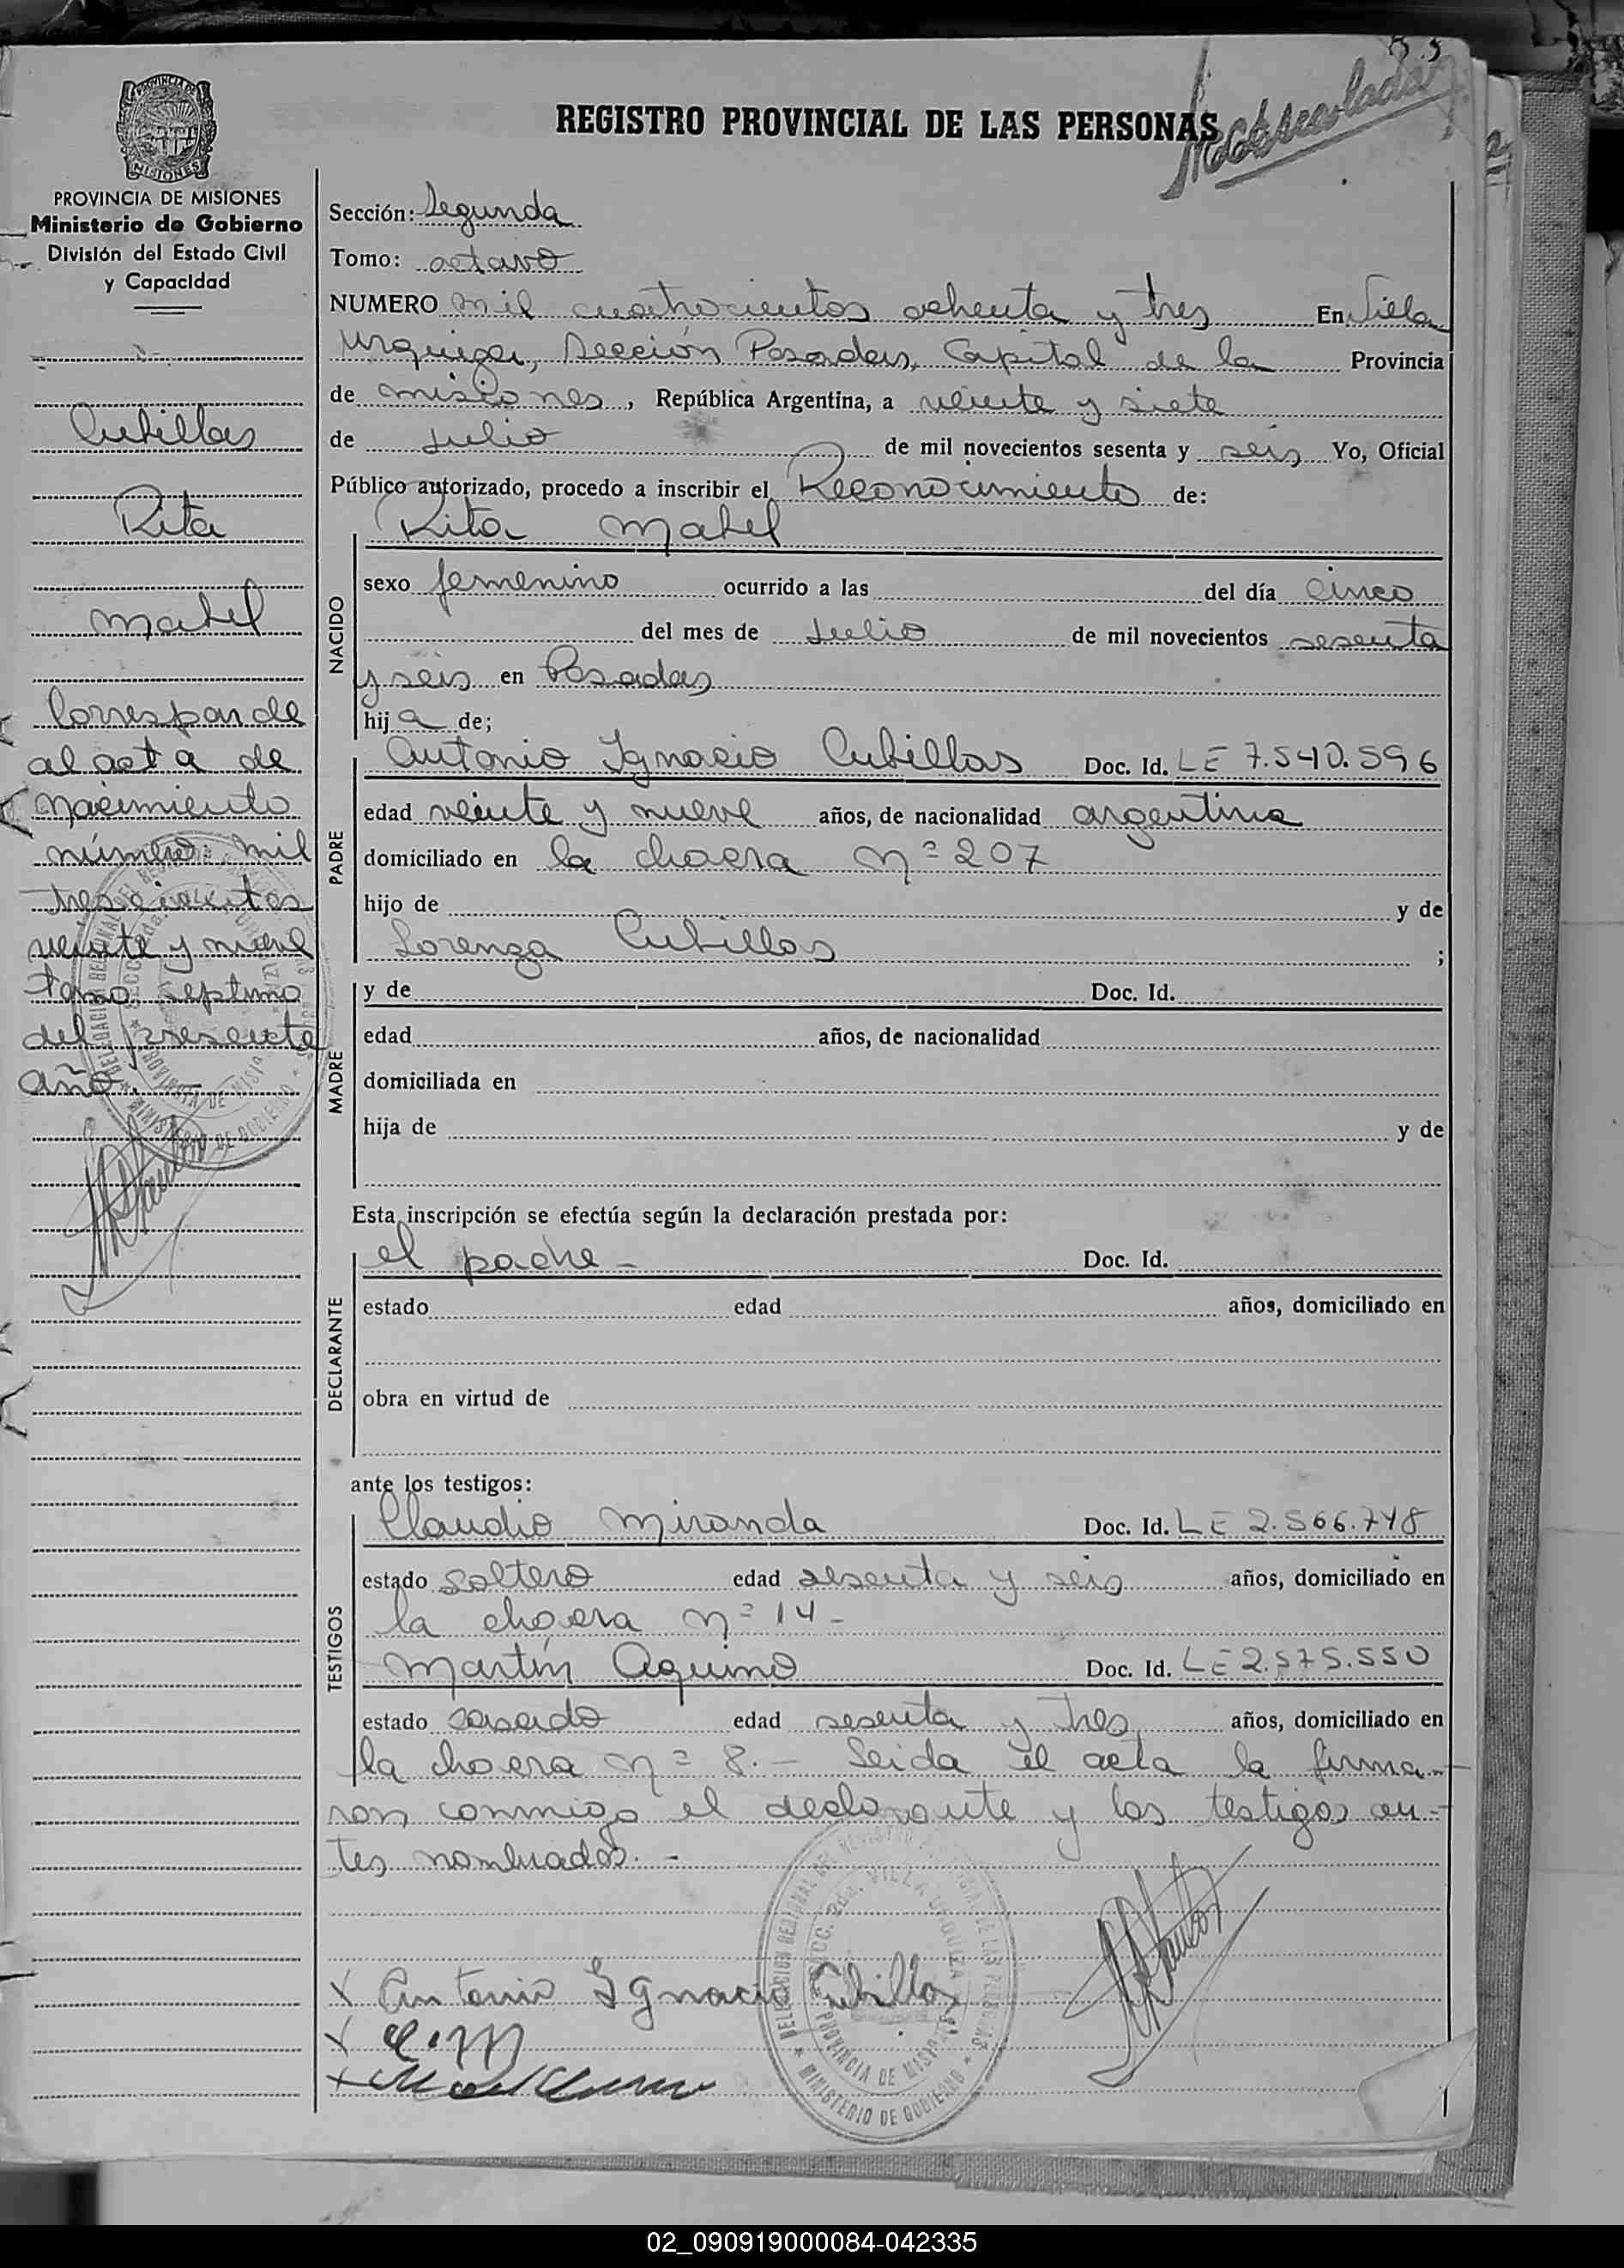 REGISTRO PROVINCIAL DE LAS PERSONAS
PROVINCIA DE MISIONES
Ministerio de Gobierno
División del Estado Civil
y Capacidad
Cubillas
Rita
Mabel
Corresponde
al acta de
nacimiento
número mil
trescientos
veinte y nueve
tomo septimo
del presente
año.
Sección: Segunda
Tomo: octavo
NUMERO mil cuatrocientos ochenta y tres En Villa
Urquiza, Sección Posadas, Capital de la Provincia
de misiones, República Argentina, a veinte y siete
de Julio de mil novecientos sesenta y seis Yo, Oficial
Público autorizado, procedo a inscribir el Reconocimiento de:
NACIDO
Rita Mabel
sexo femenino ocurrido a las del día cinco
del mes de Julio de mil novecientos sesenta
y seis en Posadas
hija de;
PADRE
Antonio Ignacio Cubillas Doc. Id. LE 7.540.596
edad veinte y nueve años, de nacionalidad argentina
domiciliado en la chacra nº 207
hijo de y de
Lorenza Cubillas ;
MADRE
y de Doc. Id.
edad años, de nacionalidad
domiciliada en
hija de y de
Esta inscripción se efectúa según la declaración prestada por:
DECLARANTE
el padre - Doc. Id.
estado edad años, domiciliado en
obra en virtud de
ante los testigos:
TESTIGOS
Claudio Miranda Doc. Id. LE 2.566.748
estado soltero edad sesenta y seis años, domiciliado en
la chacra nº 14 -
Martín Aquino Doc. Id. LE 2.575.550
estado casado edad sesenta y tres años, domiciliado en
la chacra nº 8. - Leida el acta la firma-
ron conmigo el declarante y los testigos an-
tes nombrados. -
X Antonio Ignacio Cubillas
X C.M
X
MINISTERIO DE GOBIERNO
PROVINCIA DE MISIONES
02_090919000084-042335